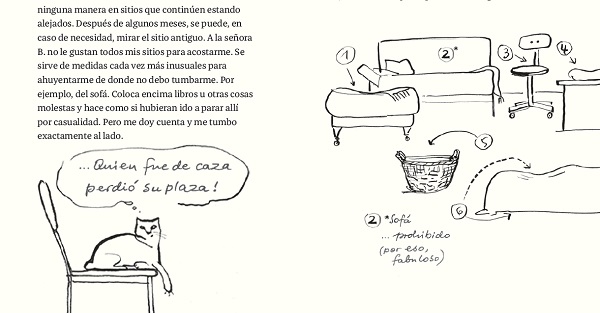 ninguna manera en sitios que continúen estando
alejados. Después de algunos meses, se puede, en
caso de necesidad, mirar el sitio antiguo. A la señora
B. no le gustan todos mis sitios para acostarme. Se
sirve de medidas cada vez más inusuales para
ahuyentarme de donde no debo tumbarme. Por
ejemplo, del sofá. Coloca encima libros u otras cosas
molestas y hace como si hubieran ido a parar allí
por casualidad. Pero me doy cuenta y me tumbo
exactamente al lado.
...Quien fue de caza
perdió su plaza!
1
2*
3
4
5
6
2 *Sofá
... prohibido
(por eso,
fabuloso)